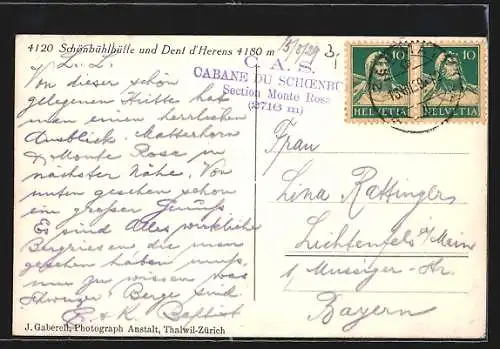 4120 Schönbühlhütte und Dent d'Herens 4180 m
15/8/29
C. A. S.
CABANE DU SCHŒNBU
Section Monte Rosa
(2716 m)
10 10
HELVETIA HELVETIA
L. L.
Von dieser schön
gelegenen Hütte hat
man einen herrlichen
Ausblick. Matterhorn
& Monte Rosa in
nächster Nähe. Von
unten gesehen schon
ein großer Genuß
Es sind Alles wirkliche
Bergriesen die man
gesehen haben muß,
um zu wissen was
Berge sind.
Fr. & K. Baptist
Frau
Lina Rattinger
Lichtenfels a/Main
1 -Str.
Bayern
J. Gaberell, Photograph Anstalt, Thalwil-Zürich